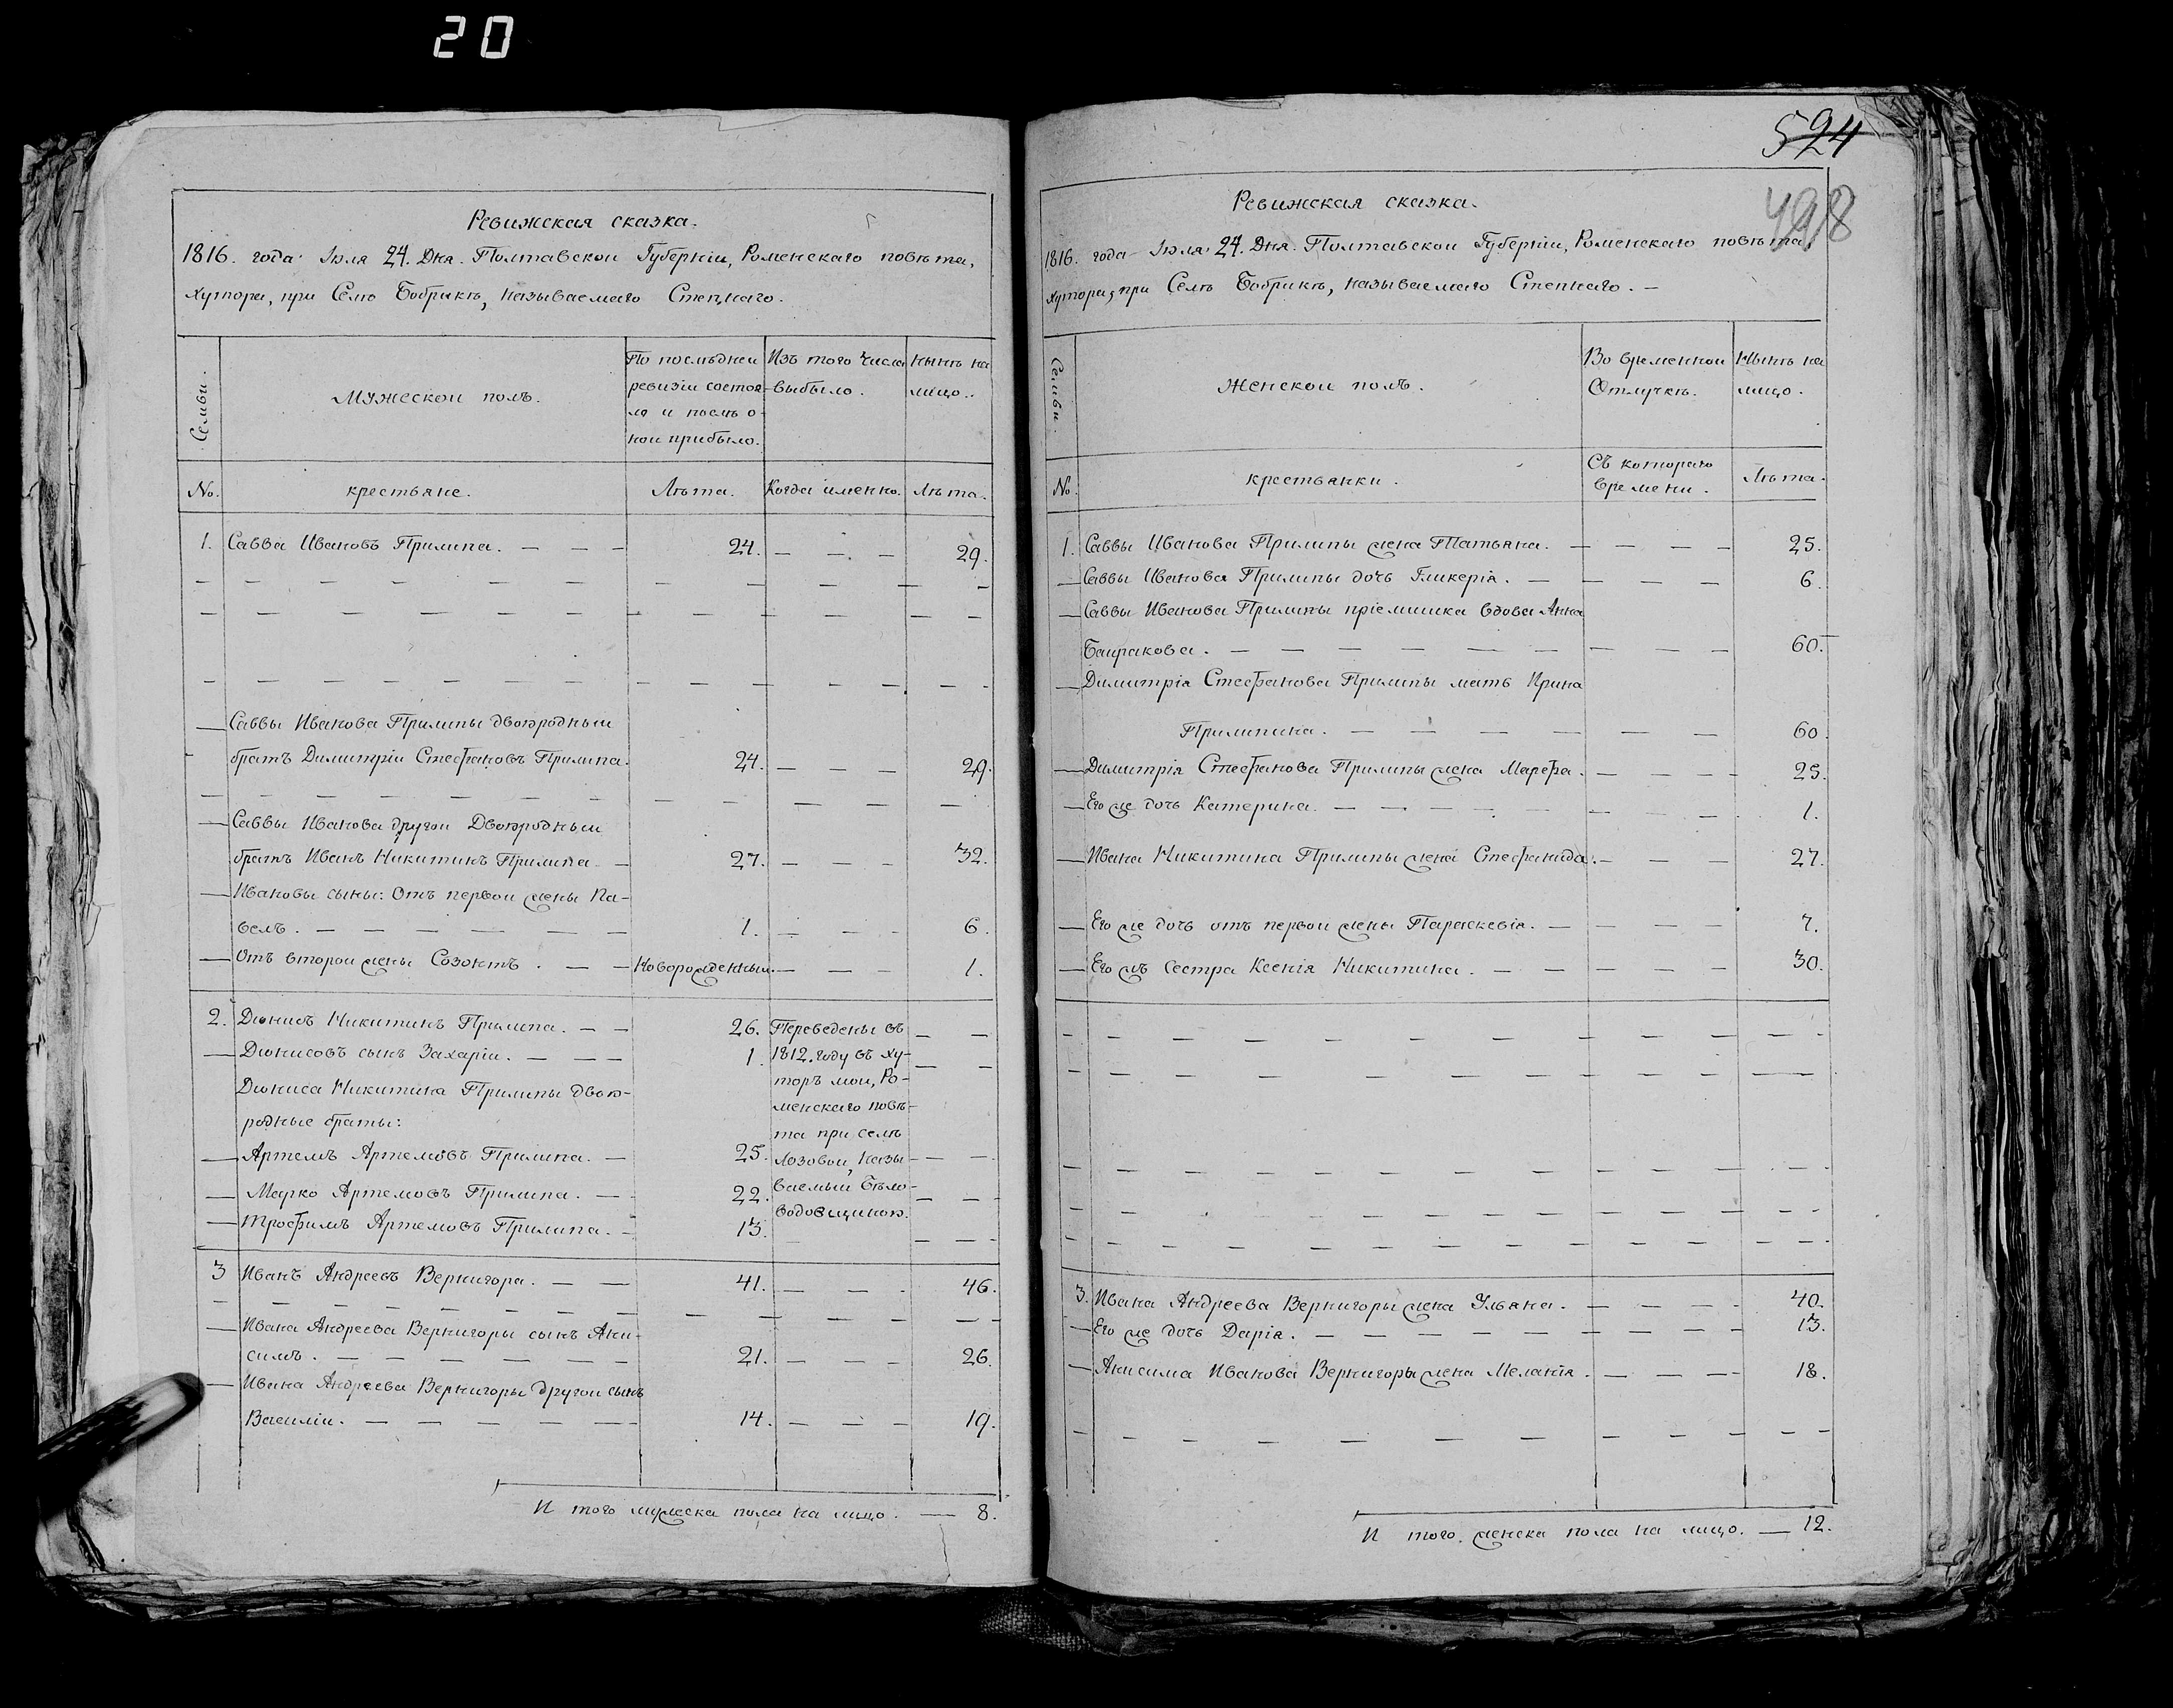 20
Ревижская сказка.
1816. года Іюля 24. Дня. Полтавской Губерніи, Роменскаго повѣта,
хутора, при Селѣ Бобрикѣ, называемаго Степнаго.
Семьи.
Мужеской полъ.
По послѣдней
ревизіи состоя-
ло и послѣ о-
ной прибыло.
Изъ того числа
выбыло.
Нынѣ на
лицо.
No.
крестьяне.
Лѣта.
Когда именно.
Лѣта.
1. Савва Ивановъ Прилипа. — — — 24. — — — 29.
Саввы Иванова Прилипы двоюродный
братъ Димитрій Стефановъ Прилипа. 24. — — — 29.
Саввы Иванова другой Двоюродный
братъ Иванъ Никитинъ Прилипа — 27. — — — 32.
Ивановы сыны: Отъ первой жены Па-
велъ. — — — — — — 1. — — — 6.
Отъ второй жены Созонтъ. — — Новорожденный. — — — 1.
2. Діонисъ Никитинъ Прилипа. — — 26.
Діонисовъ сынъ Захарій. — — — 1.
Діониса Никитина Прилипы двою-
родные браты:
Артемъ Артемовъ Прилипа. — 25.
Марко Артемовъ Прилипа. — 22.
Трофимъ Артемовъ Прилипа. — 13.
Переведены въ
1812. году въ ху-
торъ мой, Ро-
менскаго повѣ-
та при селѣ
Лозовой, назы-
ваемый Бѣло-
водовщиною.
3 Иванъ Андреевъ Вернигора. — — 41. — — — 46.
Ивана Андреева Вернигоры сынъ Ани-
симъ. — — — — — — 21. — — — 26.
Ивана Андреева Вернигоры другой сынъ
Василій. — — — — — — 14. — — — 19.
И того мужеска пола на лицо. — 8.
524
498
Ревижская сказка.
1816. года Іюля 24. Дня. Полтавской Губерніи, Роменскаго повѣта,
хутора, при Селѣ Бобрикѣ, называемаго Степнаго. —
Семьи.
Женской полъ.
Во временной
Отлучкѣ.
Нынѣ на
лицо.
No.
крестьянки.
Съ котораго
времени.
Лѣта.
1. Саввы Иванова Прилипы жена Татьяна. — — — — 25.
Саввы Иванова Прилипы дочь Гликерія. — — — — 6.
Саввы Иванова Прилипы пріемишка вдова Анна
Баиракова. — — — — — — — — — 60.
Димитрія Стефанова Прилипы мать Ирина
Прилипина. — — — — — — 60.
Димитрія Стефанова Прилипы жена Марфа. — — — — 25.
Его же дочь Катерина. — — — — — — — 1.
Ивана Никитина Прилипы жена Стефанида. — — — 27.
Его же дочь отъ первой жены Параскевія. — — — — 7.
Его жъ сестра Ксенія Никитина. — — — — — 30.
3. Ивана Андреева Вернигоры жена Ульяна. — — — — 40.
Его же дочь Дарія. — — — — — — — — 13.
Анисима Иванова Вернигоры жена Меланія. — — — — 18.
И того женска пола на лицо. — 12.